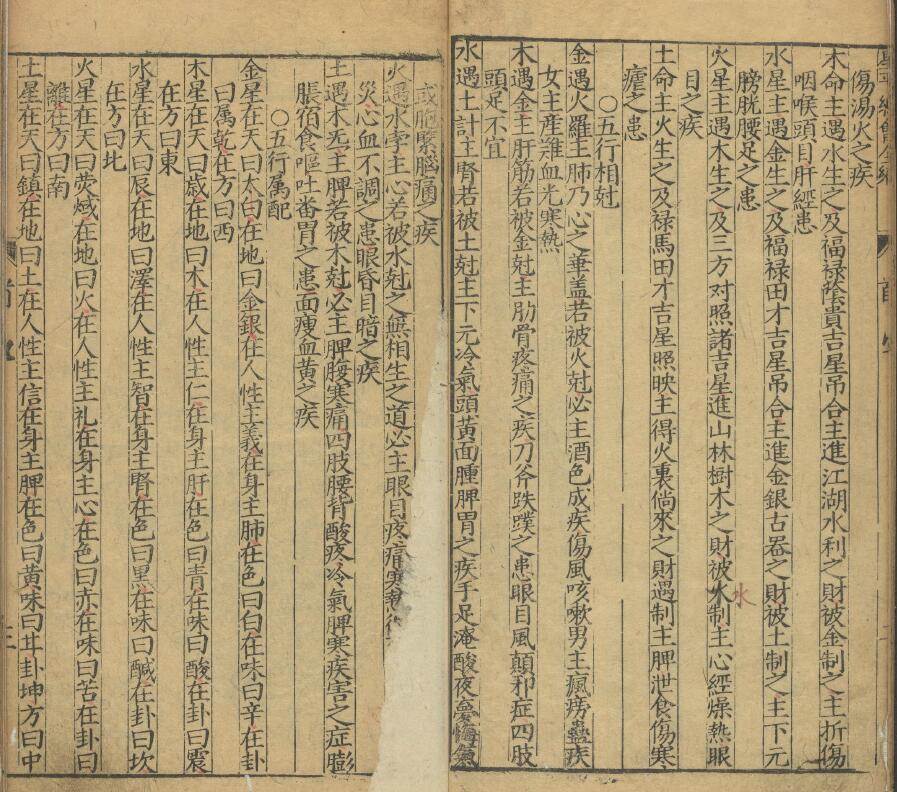 傷湯火之疾
木命主遇水生之及福禄蔭貴吉星吊合主進江湖水利之財被金制之主折傷
咽喉頭目肝經患
水星主遇金生之及福禄田才吉星吊合主進金銀古器之財被土制之主下元
膀胱腰足之患
火星主遇木生之及三方对照諸吉星進山林樹木之財被水制主心經燥熱眼
水
目之疾
土命主火生之及禄馬田才吉星照映主得火裏倘來之財遇制主脾泄食傷寒
瘧之患
○五行相尅
金遇火羅主肺乃心之華盖若被火尅必主酒色成疾傷風咳嗽男主瘋癆蠱疾
女主産難血光寒熱
木遇金主肝筋若被金尅主肋骨疼痛之疾刀斧跌蹼之患眼目風顛邪症四肢
頭足不宜
水遇土計主腎若被土尅主下元冷氣頭黄面腫脾胃之疾手足淹酸夜夢
或脑腦痛之疾
火遇水孛主心若被水尅之無相生之道必主眼目疼痛寒熱
災心血不調之患眼昏目暗之疾
土遇木炁主脾若被木尅必主脾腹寒痛四肢腰背酸疼冷氣脾寒疾害之症膨
脹宿食嘔吐番胃之患面瘦血黄之疾
○五行属配
金星在天曰太白在地曰金銀在人性主義在身主肺在色曰白在味曰辛在卦
曰属乾在方曰西
木星在天曰歳在地曰木在人性主仁在身主肝在色曰青在味曰酸在卦曰震
在方曰東
水星在天曰辰在地曰澤在人性主智在身主腎在色曰黒在味曰鹹在卦曰坎
在方曰北
火星在天曰熒惑在地曰火在人性主礼在身主心在色曰赤在味曰苦在卦曰
離在方曰南
土星在天曰鎮在地曰土在人性主信在身主脾在色曰黄味曰甘卦坤方曰中